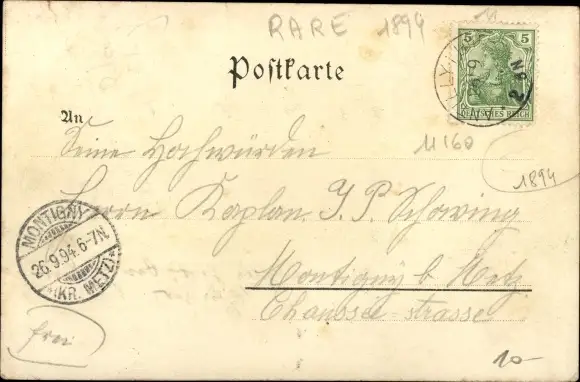 RARE 1894
5 5
DEUTSCHES REICH
Postkarte
An
M160
1894
Seine Hochwürden
Herrn Kaplan J. P. Schwing
Montigny b. Metz
Chaussée-strasse
MONTIGNY
26.9.94.6-7N
*(KR. METZ)*
frei
10-